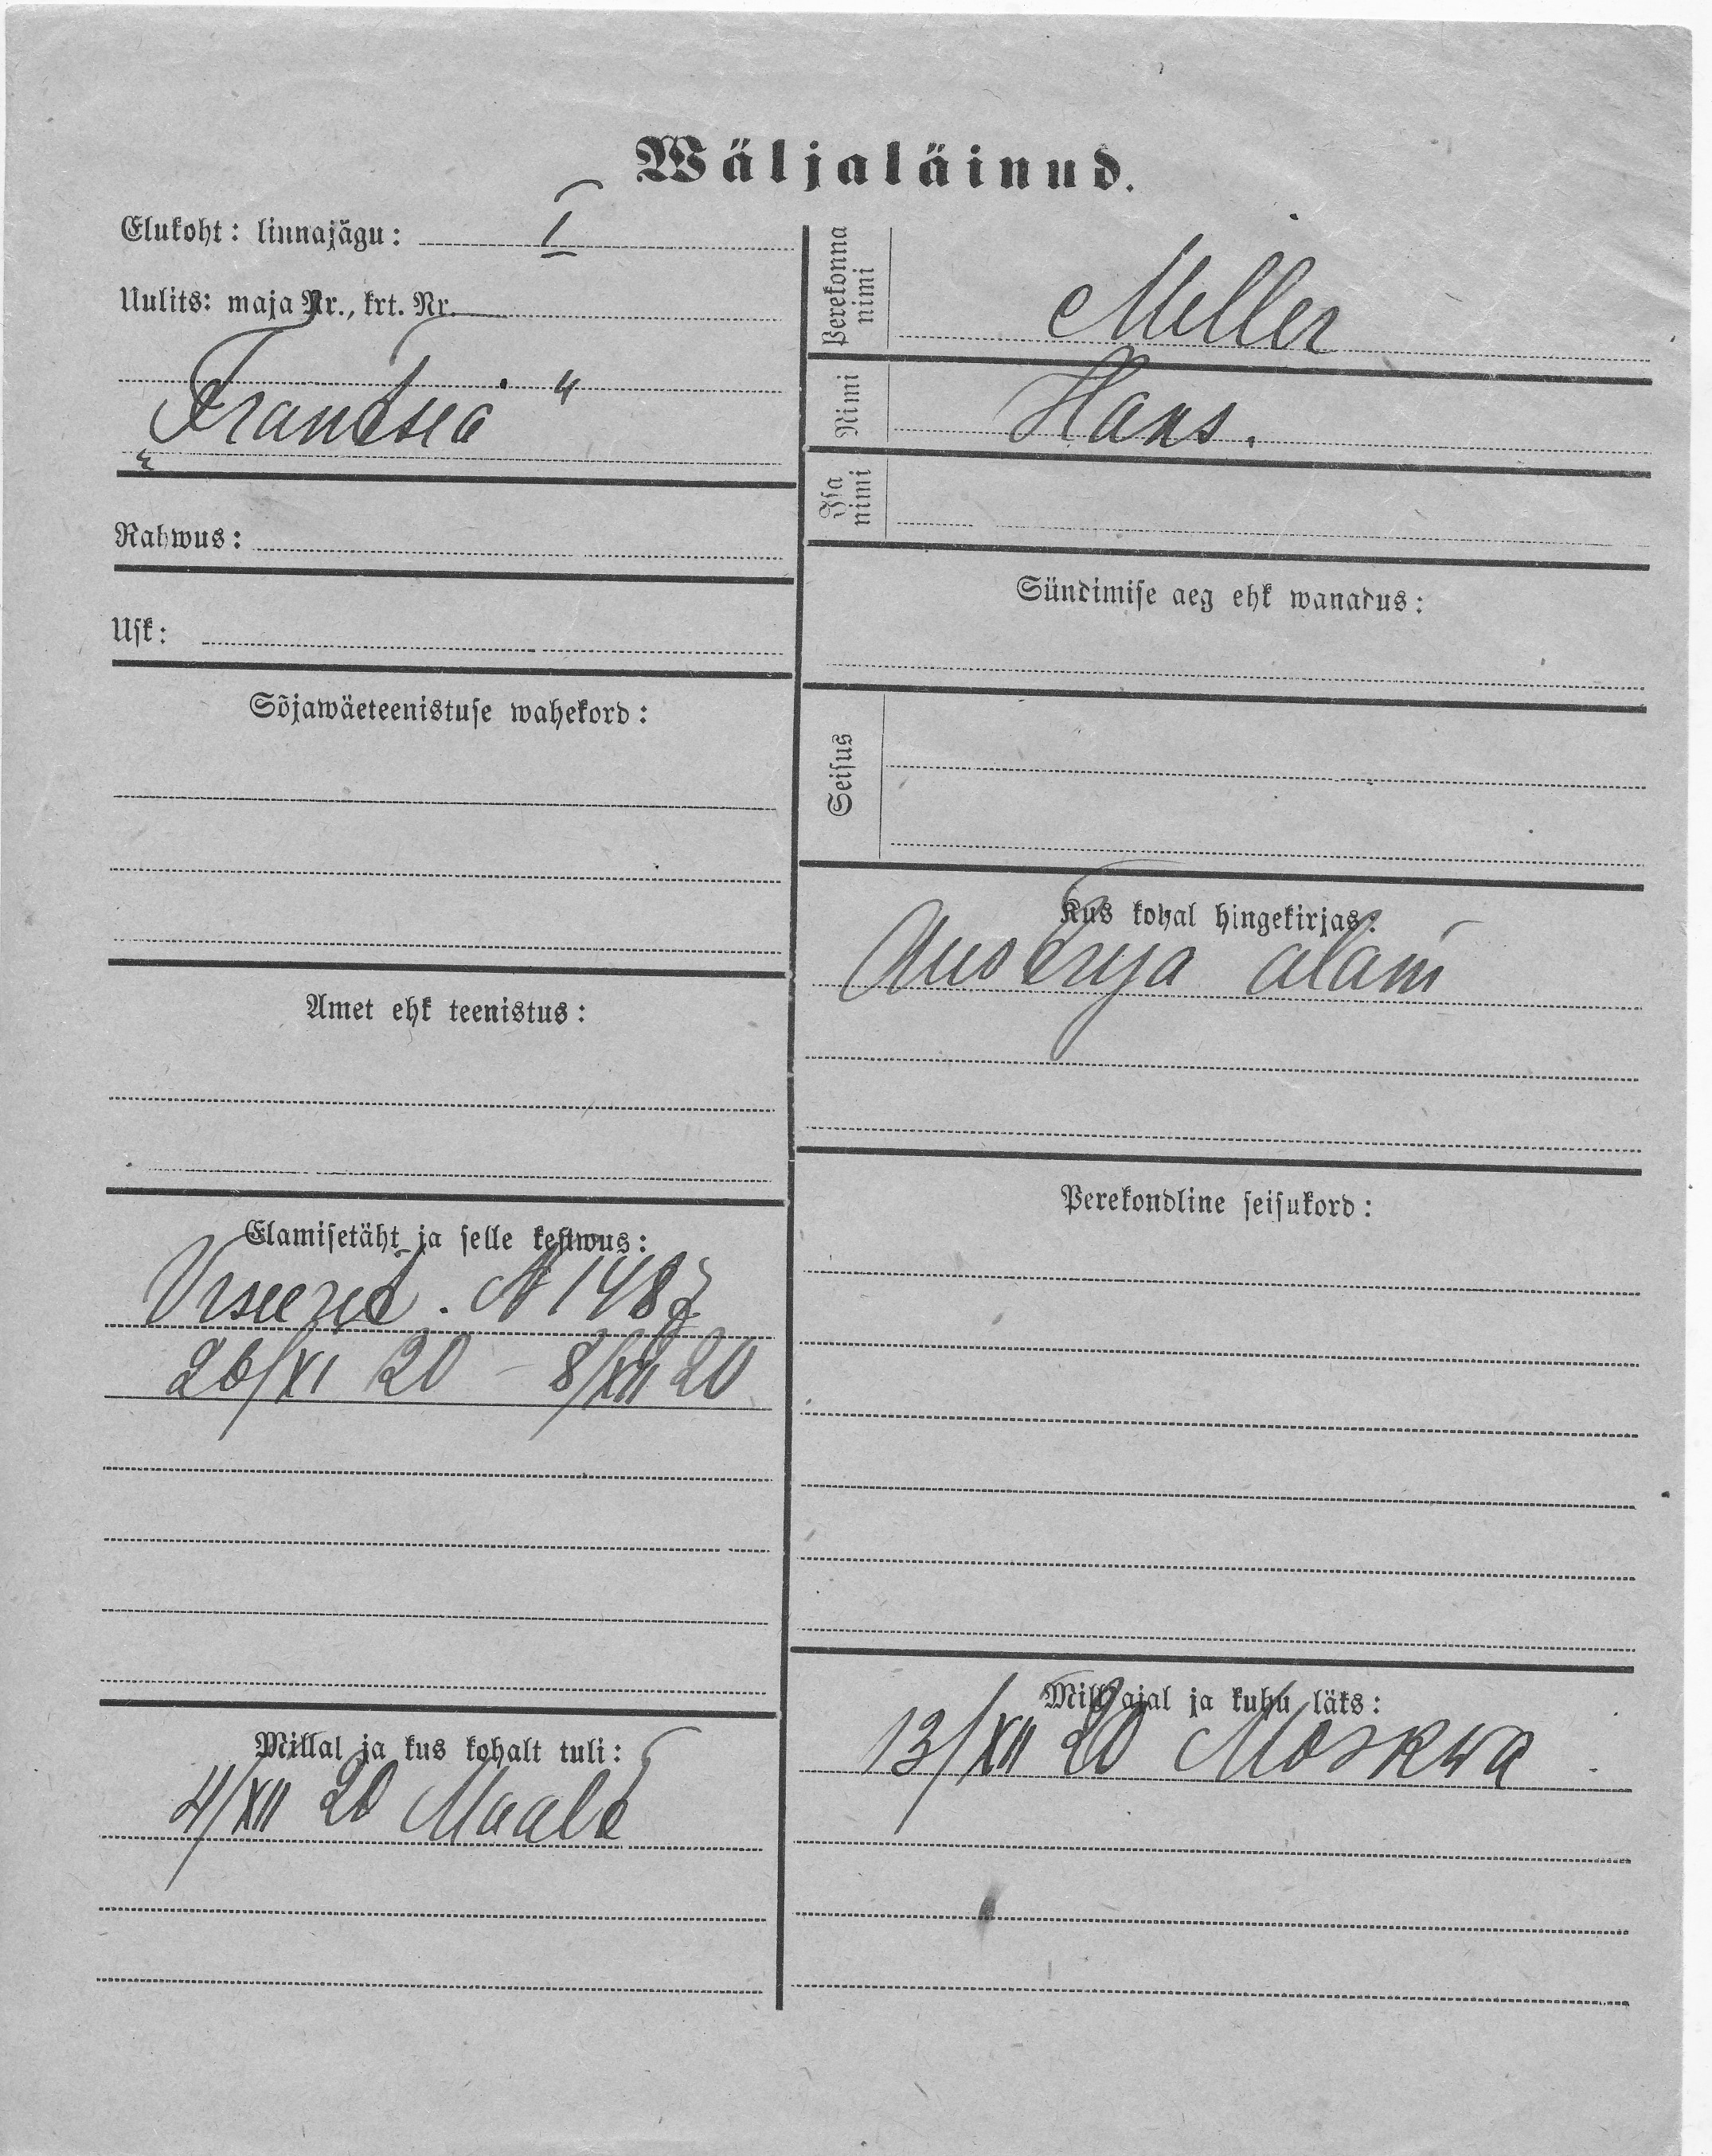 Wäljaläinud.
Elukoht: linnajägu: I
Uulits: maja Nr., krt. Nr.
"
Rahwus:
Usk:
Sõjawäeteenistuse wahekord:
Amet ehk teenistus:
Elamisetäht ja selle kestwus:
N 1482
26/XI 20 – 8/XII 20
Millal ja kus kohalt tuli:
4/XII 20 Maalt
Perekonna nimi Meller
Nimi Hans.
Isa nimi
Sündimise aeg ehk wanadus:
Seisus
Kus kohal hingekirjas:
Austrija alam
Perekondline seisukord:
Mill ajal ja kuhu läks:
13/XII 20 Moskwa